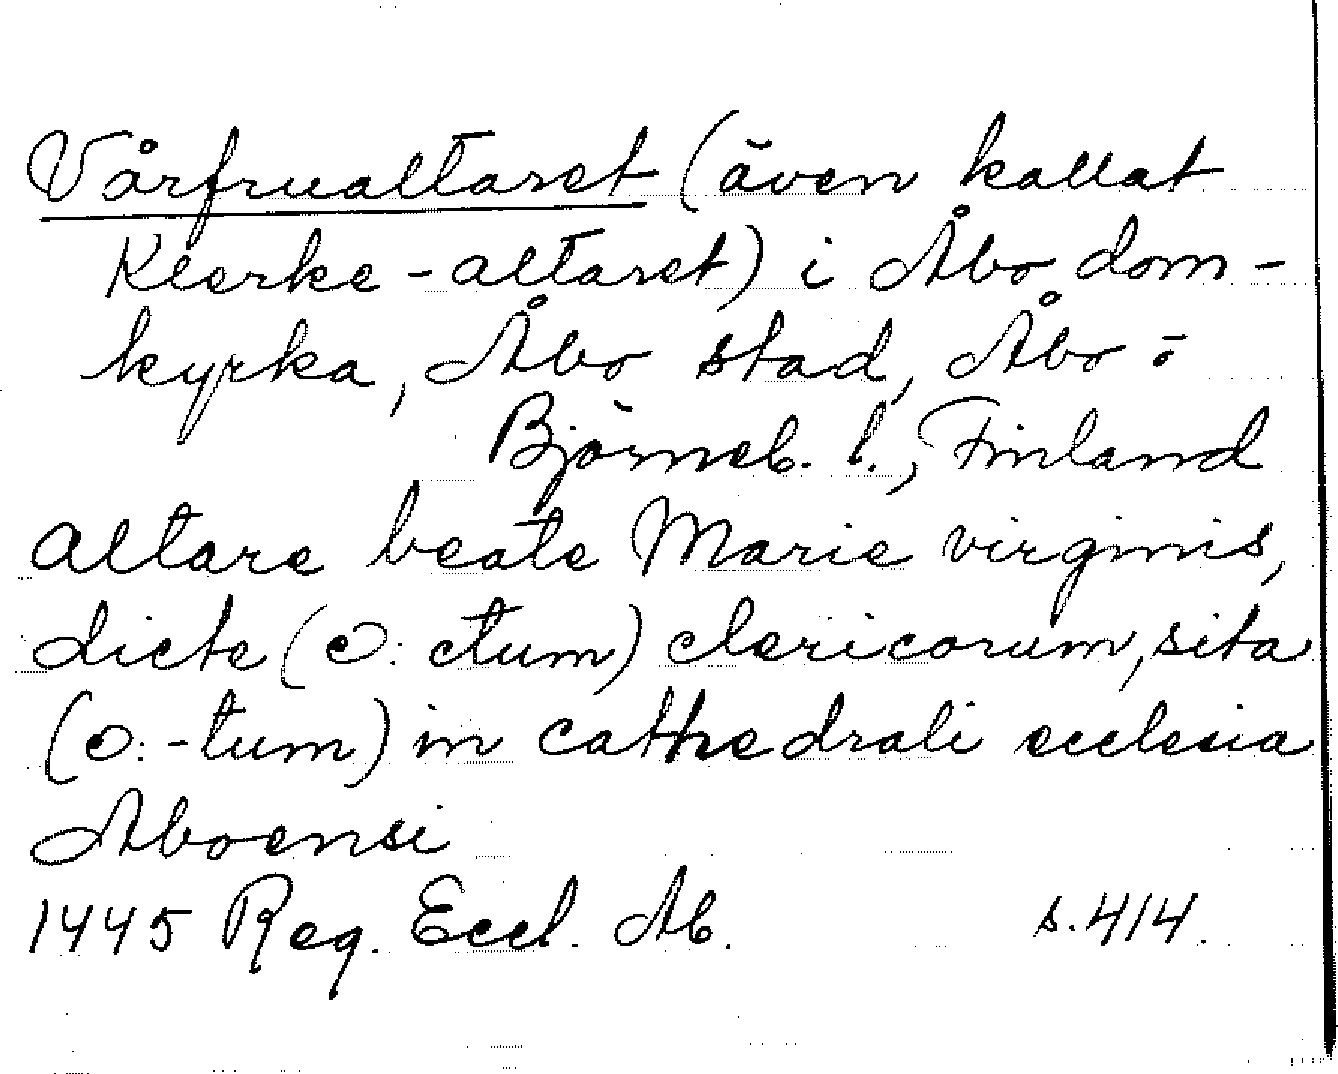 Vårfrualtaret (även kallat
Klerke-altaret) i Åbo dom-
kyrka, Åbo stad, Åbo o
Björneb. l., Finland
Altare beate Marie virginis,
dicte (ɔ: ctum) clericorum, sita
(ɔ: -tum) in cathedrali ecclesia
Aboensi
1445 Reg. Eccl. Ab. s. 414.